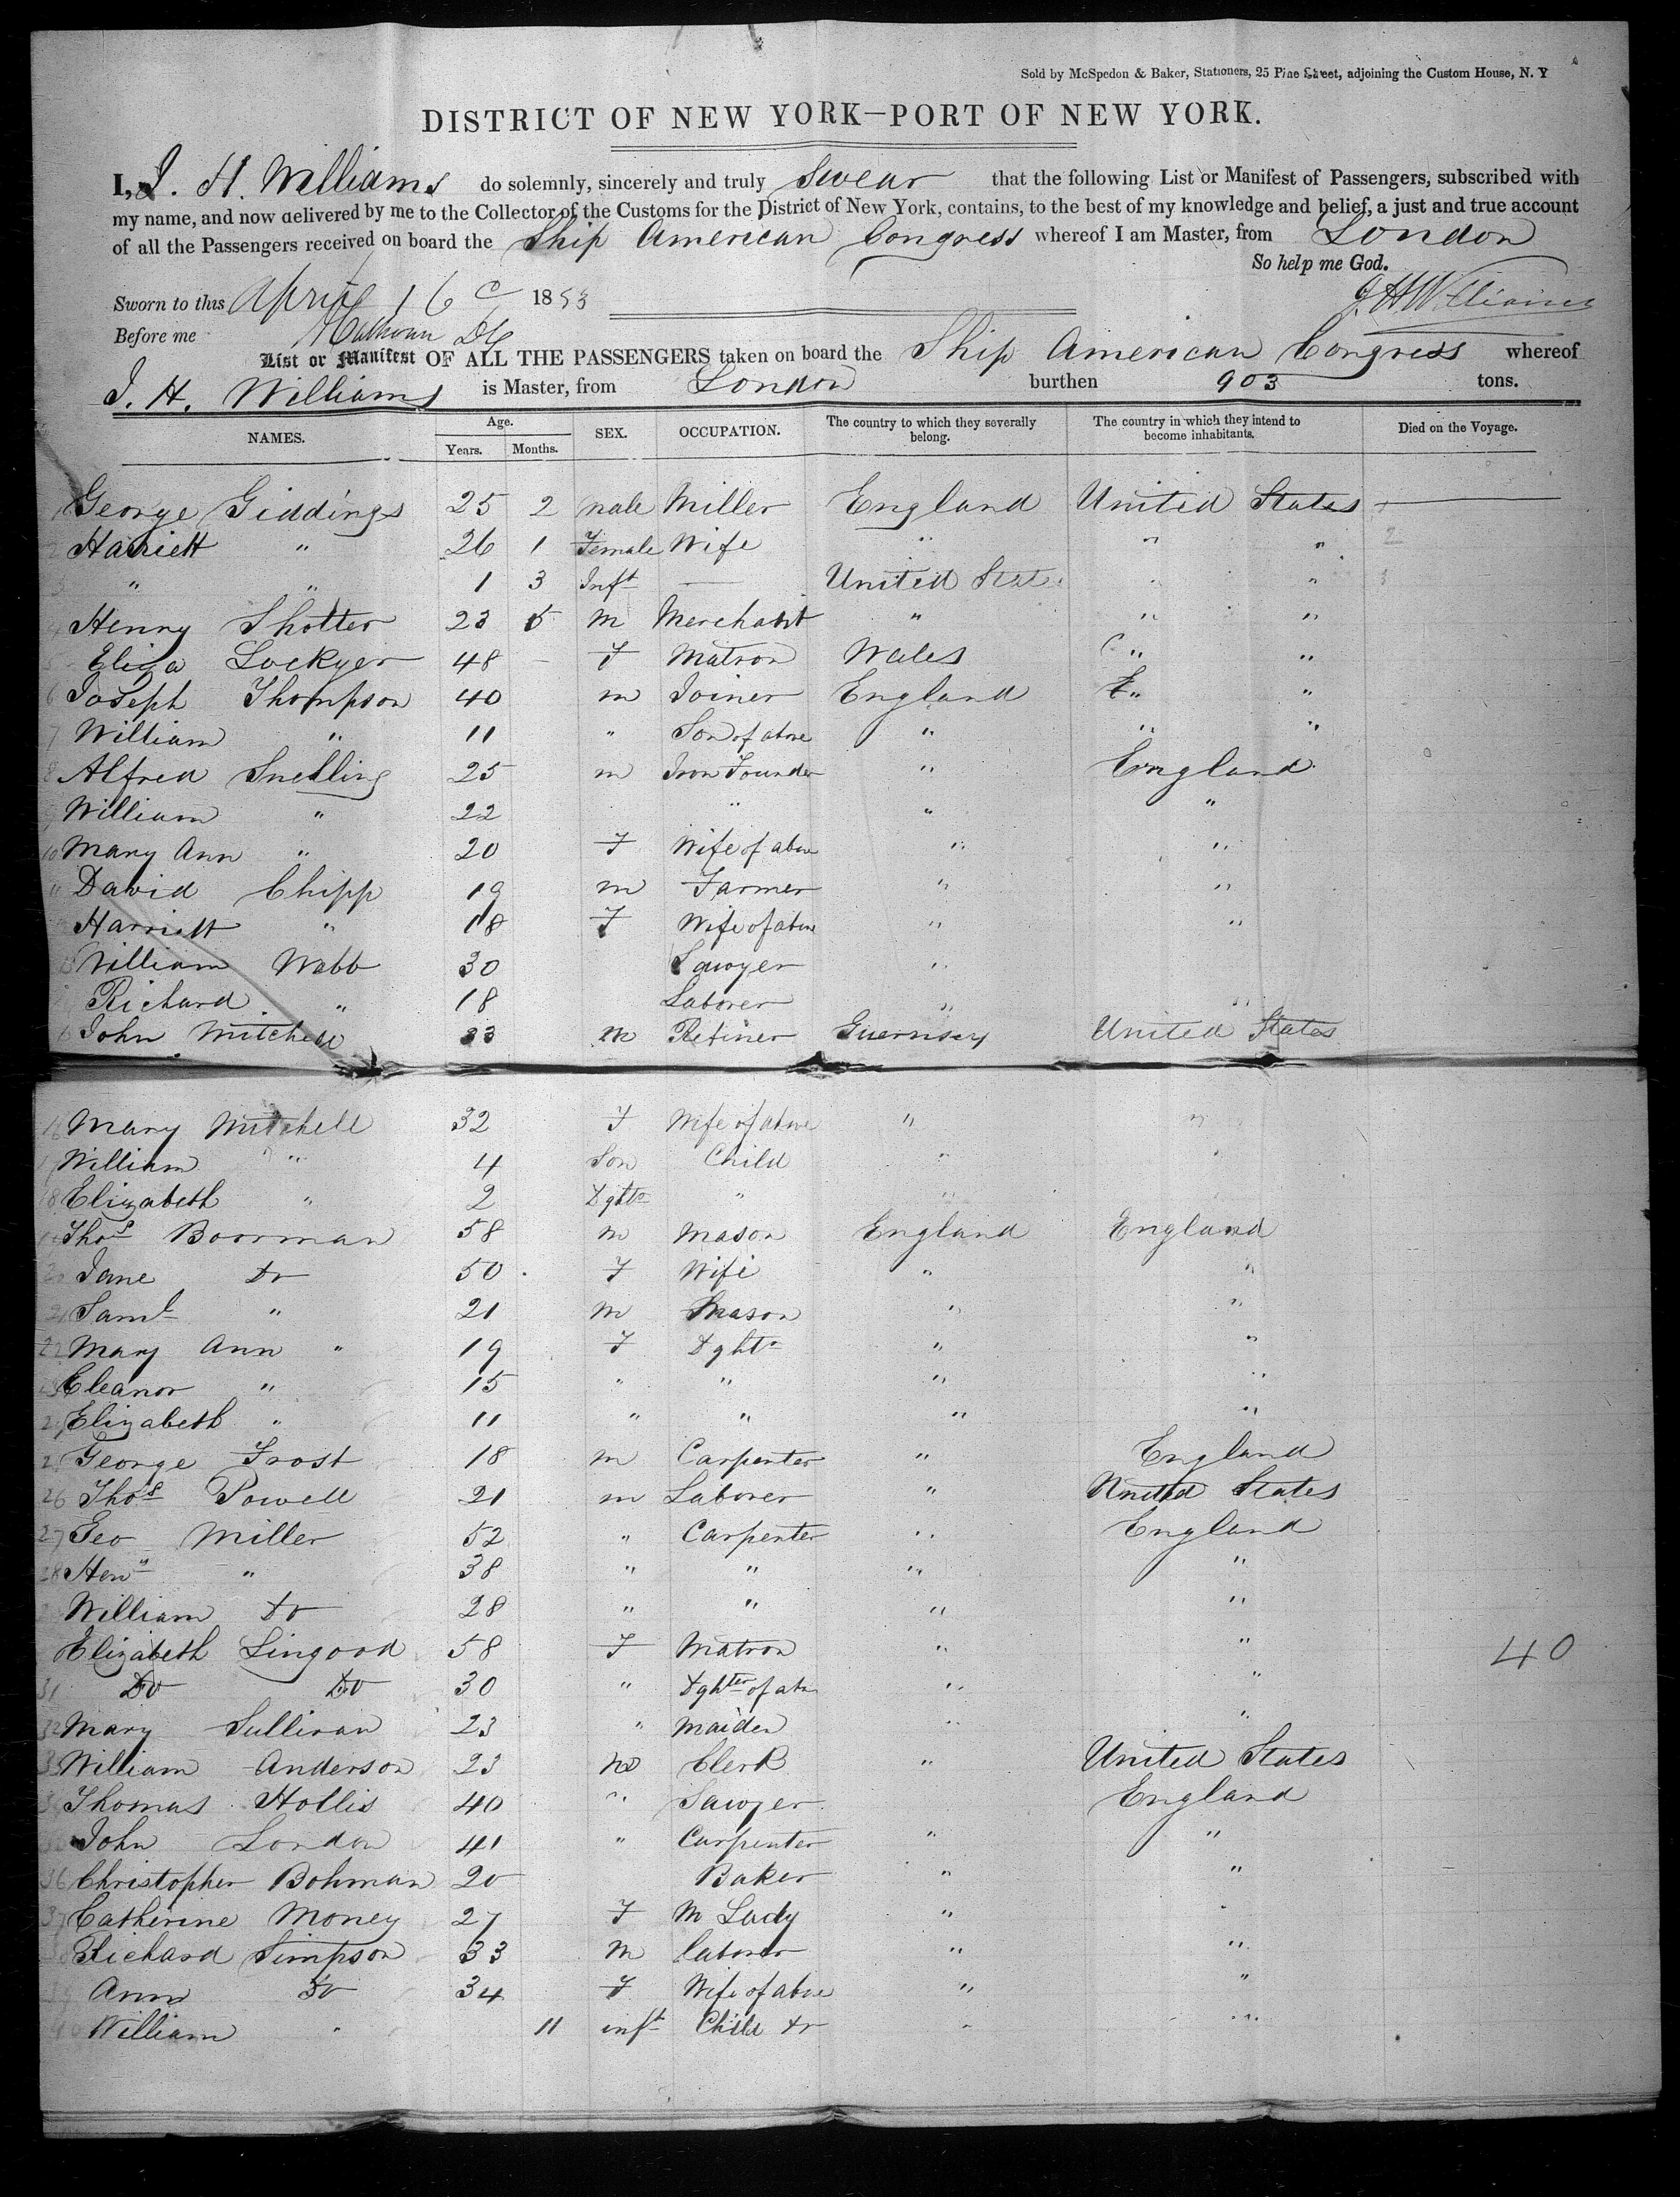 Sold by McSpedon & Baker, Stationers, 25 Pine Street, adjoining the Custom House, N. Y
DISTRICT OF NEW YORK—PORT OF NEW YORK.
I, J. H. Williams do solemnly, sincerely and truly Swear that the following List or Manifest of Passengers, subscribed with
my name, and now delivered by me to the Collector of the Customs for the District of New York, contains, to the best of my knowledge and belief, a just and true account
of all the Passengers received on board the Ship American Congress whereof I am Master, from London
So help me God.
Sworn to this April 16 1853 J H Williams
Before me
List or Manifest OF ALL THE PASSENGERS taken on board the Ship American Congress whereof
J. H. Williams is Master, from London burthen 903 tons.
NAMES. Age. Years. Months. SEX. OCCUPATION. The country to which they severally belong. The country in which they intend to become inhabitants. Died on the Voyage.
1 George Giddings 25 2 male Miller England United States
2 Harriett " 26 1 Female Wife " " " 2
3 " " 1 3 Inft — United Stat " " 3
4 Henry Shotter 23 5 m Merchant " " "
5 Eliza Lockyer 48 – F Matron Wales " "
6 Joseph Thompson 40 m Joiner England " "
7 William " 11 " Son of above " " "
8 Alfred Snelling 25 m Iron Founder " England
9 William " 22 " " "
10 Mary Ann " 20 F Wife of above " "
11 David Chipp 19 m Farmer " "
Harriett " 18 F Wife of above " "
13 William Webb 30 Sawyer "
Richard " 18 Laborer " "
John Mitchell 33 m Refiner Guernsey United States
16 Mary Mitchell 32 F Wife of above " "
17 William " 4 Son Child " "
18 Elizabeth " 2 Dghtr " "
19 Thos Boorman 58 m Mason England England
20 Jane Do 50 F Wife " "
21 Saml " 21 m Mason " "
22 Mary Ann " 19 F Dghtr " "
23 Eleanor " 15 " " " "
24 Elizabeth " 11 " " " "
25 George Frost 18 m Carpenter " England
26 Thos Powell 21 m Laborer " United States
27 Geo Miller 52 " Carpenter " England
28 Heny " 38 " " " "
William Do 28 " " " "
Elizabeth Lingood 58 F Matron " " 40
31 Do Do 30 " Dghter of abv " "
32 Mary Sullivan 23 " Maiden " "
33 William Anderson 23 m Clerk " United States
34 Thomas Hollis 40 " Sawyer England
John London 41 " Carpenter " "
36 Christopher Bohman 20 Baker " "
37 Catherine Money 27 F M Lady " "
38 Richard Simpson 33 m laborer " "
39 Ann Do 34 F Wife of above " "
40 William " 11 inft Child Do " "